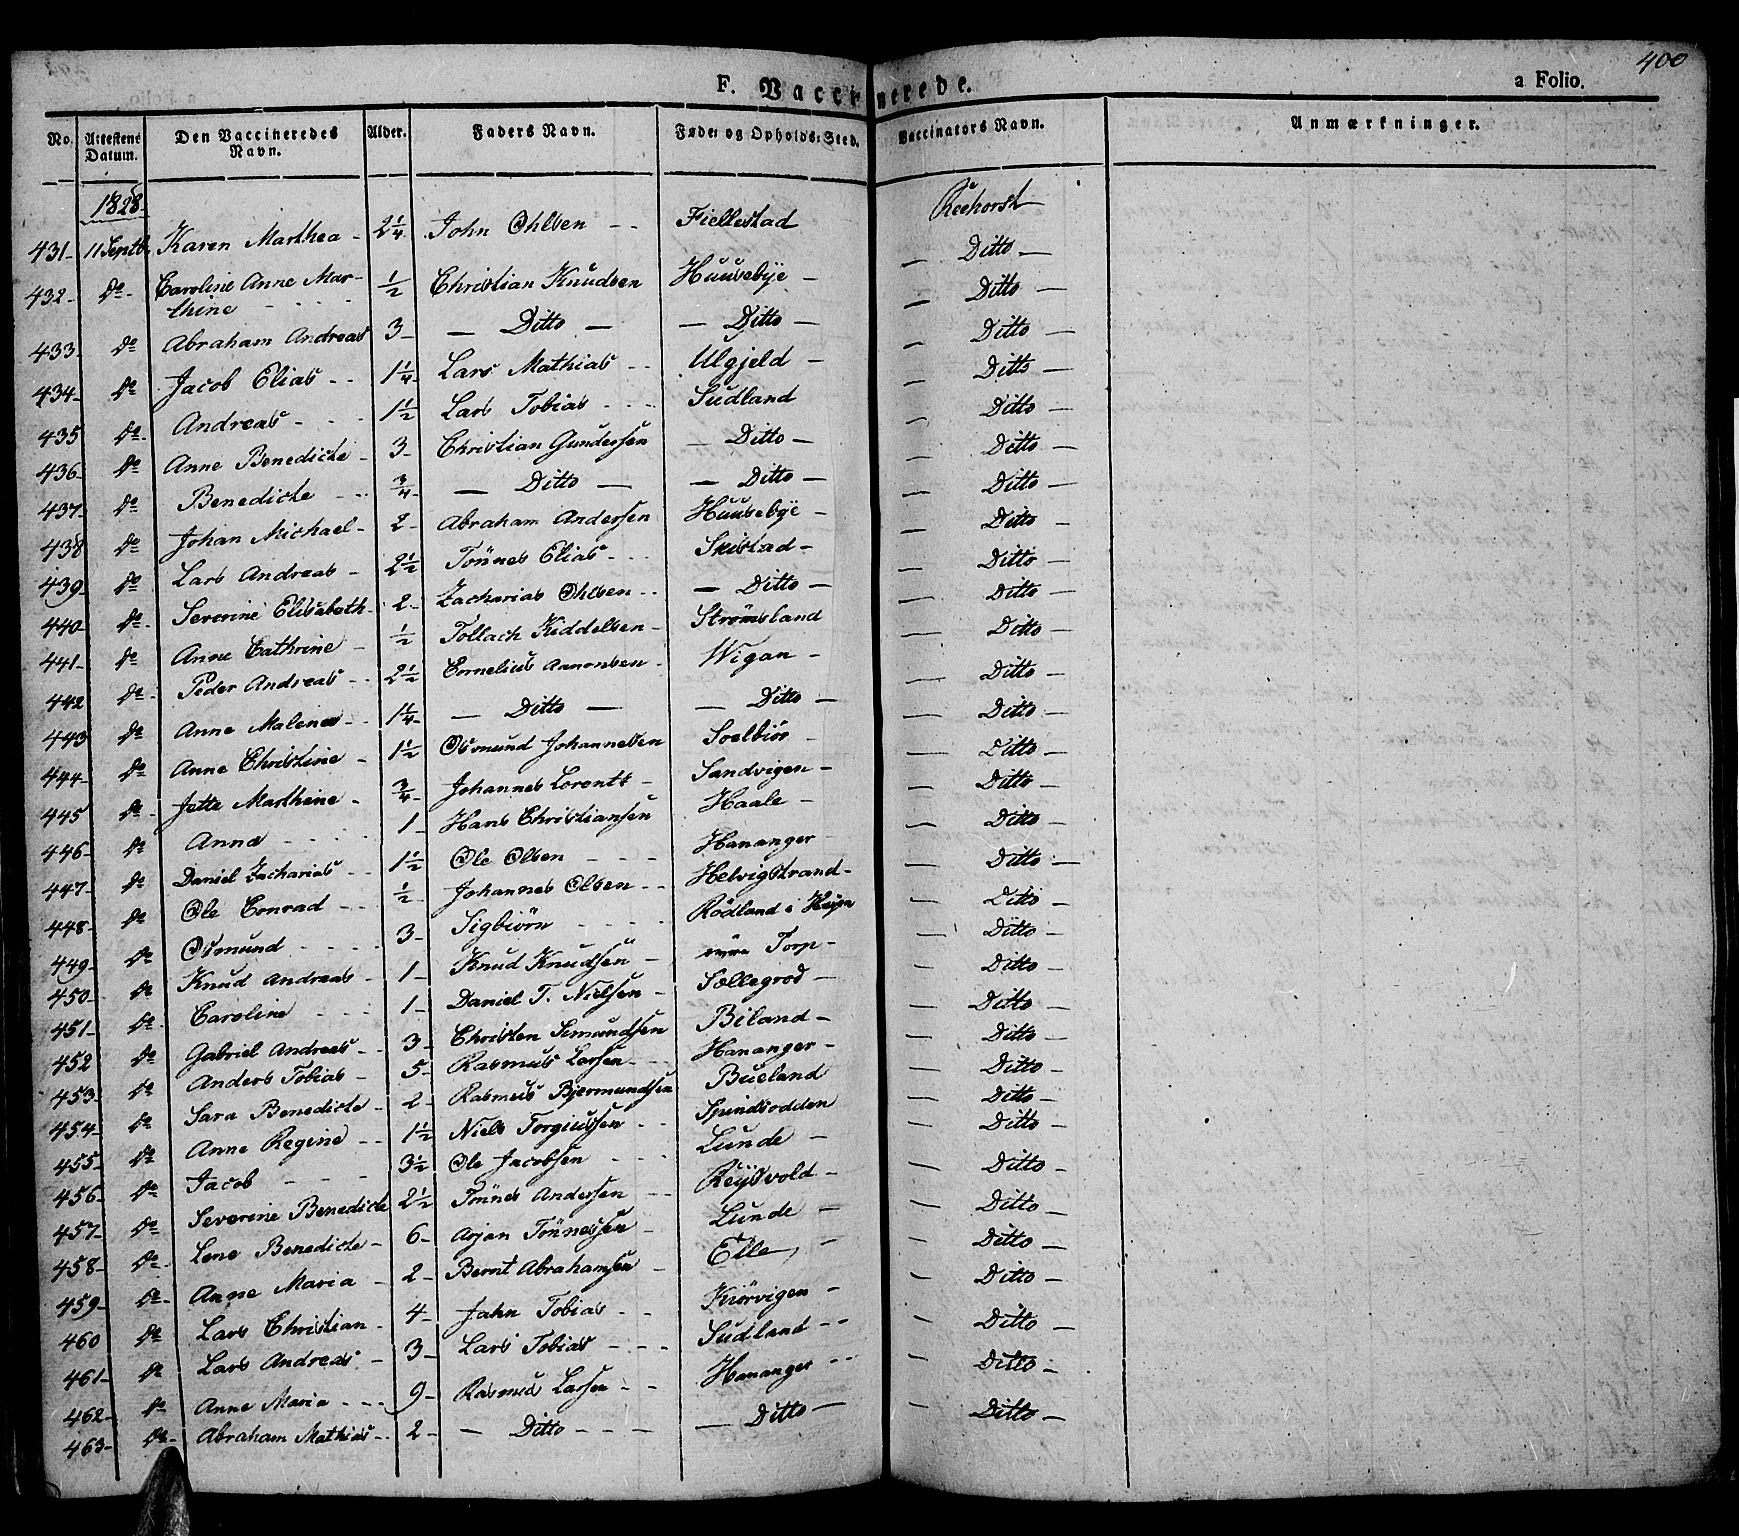 400
F. Vaccinerede.
a Folio.
No. Attestens Datum. Den Vaccineredes Navn. Alder. Faders Navn. Føde- og Opholds-Sted. Vaccinators Navn. Anmærkninger.
1828.
431 - 11 Septb. Karen Marthea - 2 1/4 John Ohlsen - - Fiellestad Reehorst
432 - do - Caroline Anne Mar- 1/2 Christian Knudsen Huusebye - — Ditto —
thine - - - -
433 do Abraham Andreas 3 - — Ditto — — Ditto — — Ditto —
434 - do Jacob Elias - - 1 1/4 - Lars Mathias - - Ulgjeld - — Ditto —
435 do - Andreas - - - 1 1/2 Lars Tobias - - - Sudland — Ditto —
436 - do Anne Benedicte - 3 - Christian Gundersen — Ditto — — Ditto —
437 - do Benedicte - - - 3/4 - — Ditto — — Ditto — — Ditto —
438 do Johan Michael - 2 - Abraham Andersen Huusebye - — Ditto —
439 - do Lars Andreas - 2 1/2 Tönnes Elias - - - Skistad - — Ditto —
440 - do - Severine Elisabeth - 2 - Zacharias Ohlsen - - — Ditto — — Ditto —
441 - do Anne Cathrine - 1/2 Tollach Keddelsen - Strømsland — Ditto —
442 do - Peder Andreas - - 2 1/2 Cornelius Aanonsen - Wigan - — Ditto —
443 do Anne Malene - - 1 1/4 - — Ditto — — Ditto — — Ditto —
444 - do Anne Christine - 1 1/2 Osmund Johannesen Soelbiör - — Ditto —
445 do - Jette Marthine - 3/4 - Johannes Lorentz - Sandvigen - — Ditto —
446 - do Anna - - - 1 - Hans Christiansen Haale - — Ditto —
447 - do Daniel Zacharias - - 1 1/2 Ole Olsen - - - Hananger — Ditto —
448 - do Ole Conrad - - - 1/2 - Johannes Olsen - - Helvigstrand - — Ditto —
449 - do Osmund - - - - 3 - Sigbiörn - - - - Rödland i — Ditto —
450 - do Knud Andreas - 1 - Knud Knudsen - Torp - — Ditto —
451 - do - Caroline - - - 1 - Daniel T. Nielsen - Sællegrod — — Ditto —
452 do Gabriel Andreas - - 3 - Christen Simundsen Biland - — Ditto —
453 - do Anders Tobias - 5 - Rasmus Larsen - - - Hananger - — Ditto —
454 - do Sara Benedicte - 2 - Rasmus Bjermundsen Bueland — Ditto —
455 - do Anne Regine - - 1 1/2 - Niels Torgiussen - - Spindsodden — Ditto —
456 - do - Jacob - - - 3 1/2 Ole Jacobsen - - - Lunde - — Ditto —
457 - do - Severine Benedicte 2 1/2 Tönnes Andersen - - Reysvold - — Ditto —
458 - do - Lene Benedicte - 6 - Arjan Tönnessen - Lunde - — Ditto —
459 - do - Anne Maria - 2 - Bernt Abrahamsen - Elle, - — Ditto —
460 do Lars Christian - 4 - Jahn Tobias - - Kiörvigen - — Ditto —
461 - do Lars Andreas - 3 - Lars Tobias - - - Sudland - - — Ditto —
462 - do - Anne Maria - - - 9 - Rasmus Larsen - - Hananger - - — Ditto —
463 - do - Abraham Mathias - - 2 - — Ditto - - - - — Ditto — — Ditto —